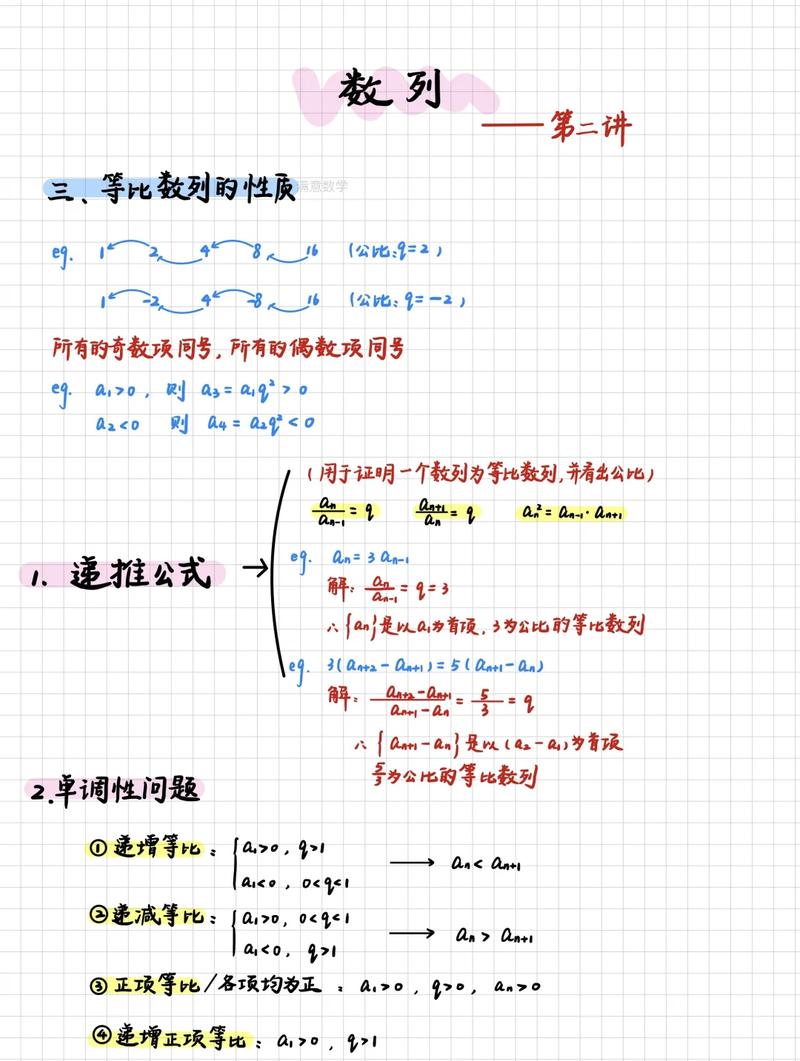 数列
——第二讲
三、等比数列的性质
满意数学
eg. 1 2 4 8 16 (公比:q=2)
1 -2 4 -8 16 (公比:q=-2)
所有的奇数项同号,所有的偶数项同号
eg. a₁>0, 则 a₃=a₁q²>0
a₂<0 则 a₄=a₂q²<0
(用于证明一个数列为等比数列,并看出公比)
aₙ/aₙ₋₁=q aₙ₊₁/aₙ=q aₙ²=aₙ₋₁·aₙ₊₁
1. 递推公式 →
eg. aₙ=3aₙ₋₁
解: aₙ/aₙ₋₁=q=3
∴{aₙ}是以a₁为首项,3为公比的等比数列
eg. 3(aₙ₊₂-aₙ₊₁)=5(aₙ₊₁-aₙ)
解: (aₙ₊₂-aₙ₊₁)/(aₙ₊₁-aₙ)=5/3=q
∴{aₙ₊₁-aₙ}是以(a₂-a₁)为首项
5/3为公比的等比数列
2.单调性问题
①递增等比: { a₁>0, q>1
a₁<0, 0<q<1 → aₙ<aₙ₊₁
②递减等比: { a₁>0, 0<q<1
a₁<0, q>1 → aₙ>aₙ₊₁
③正项等比/各项均为正: a₁>0, q>0, aₙ>0
④递增正项等比: a₁>0, q>1